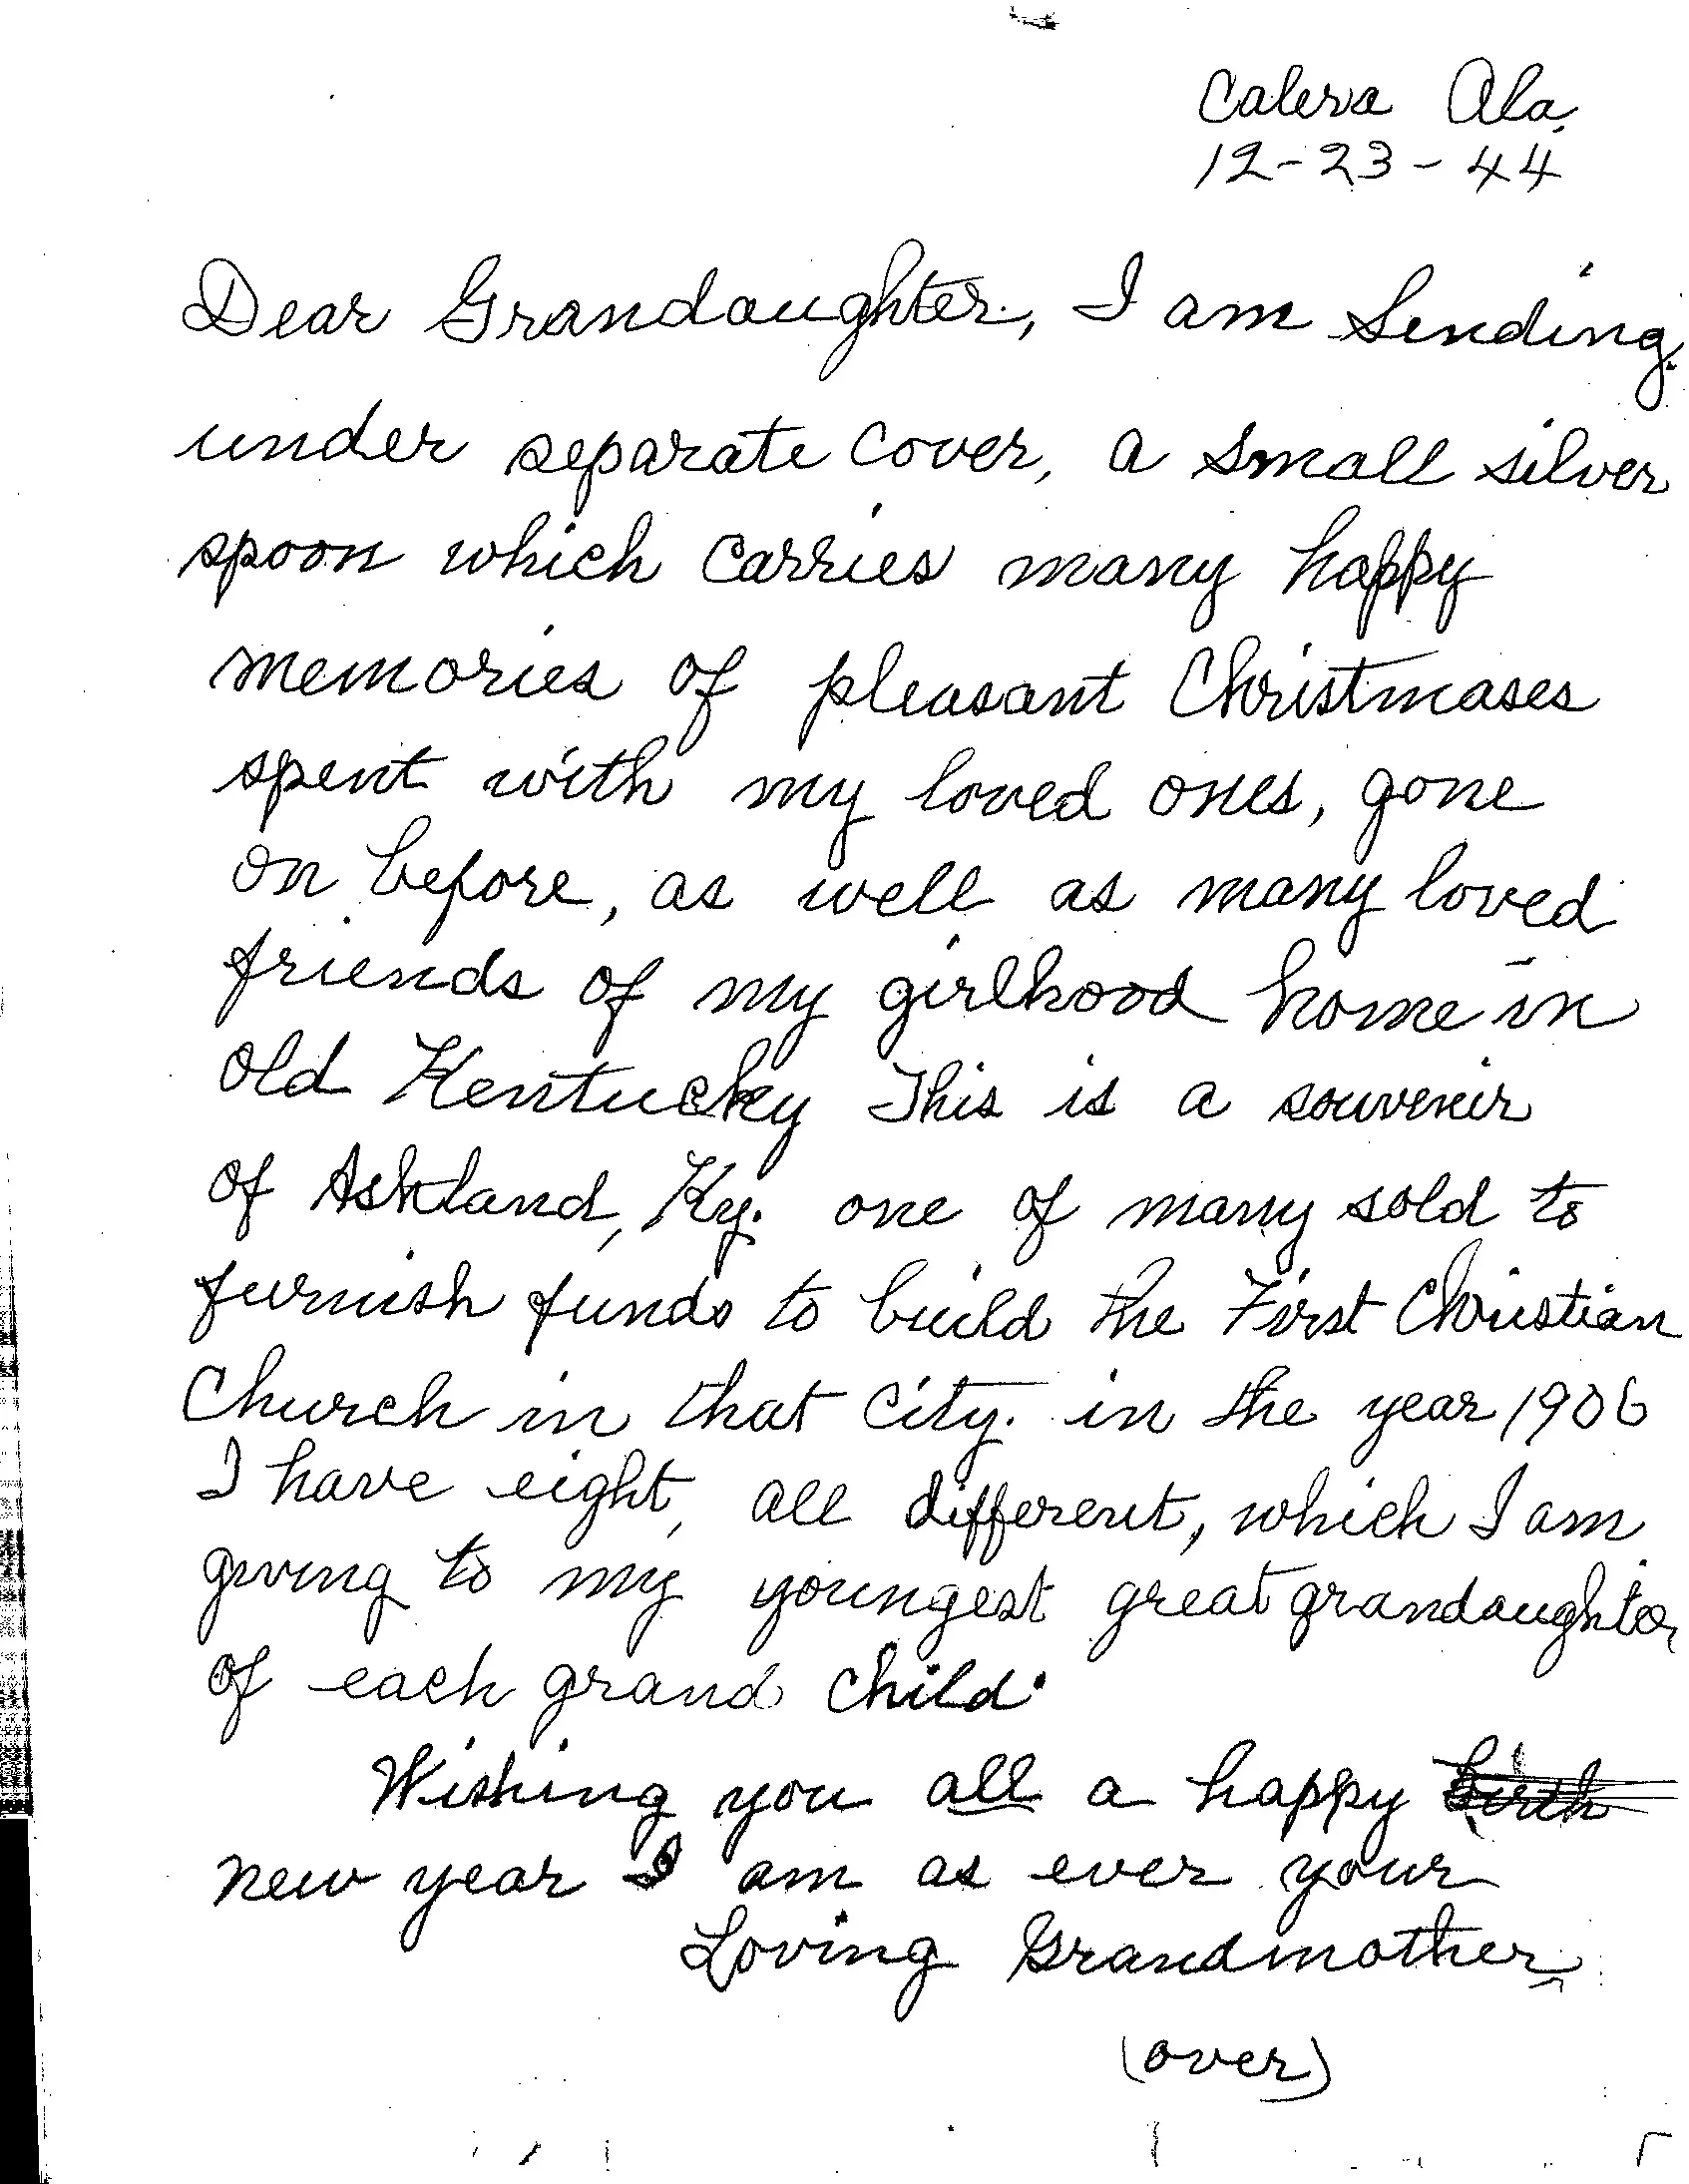 Calera Ala,
12-23-44
Dear Grandaughter, I am Sending
under separate cover, a small silver
spoon which carries many happy
memories of pleasant Christmases
spent with my loved ones, gone
on before, as well as many loved
friends of my girlhood home in
old Kentucky This is a souvenir
of Ashland, Ky. one of many sold to
furnish funds to build the First Christian
Church in that city. in the year 1906
I have eight, all different, which I am
giving to my youngest great grandaughter
of each grand child.
Wishing you all a happy birth
new year I am as ever your
Loving Grandmother
(over)